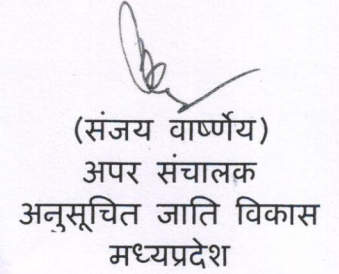 (संजय वार्ष्णेय)
अपर संचालक
अनुसूचित जाति विकास
मध्यप्रदेश